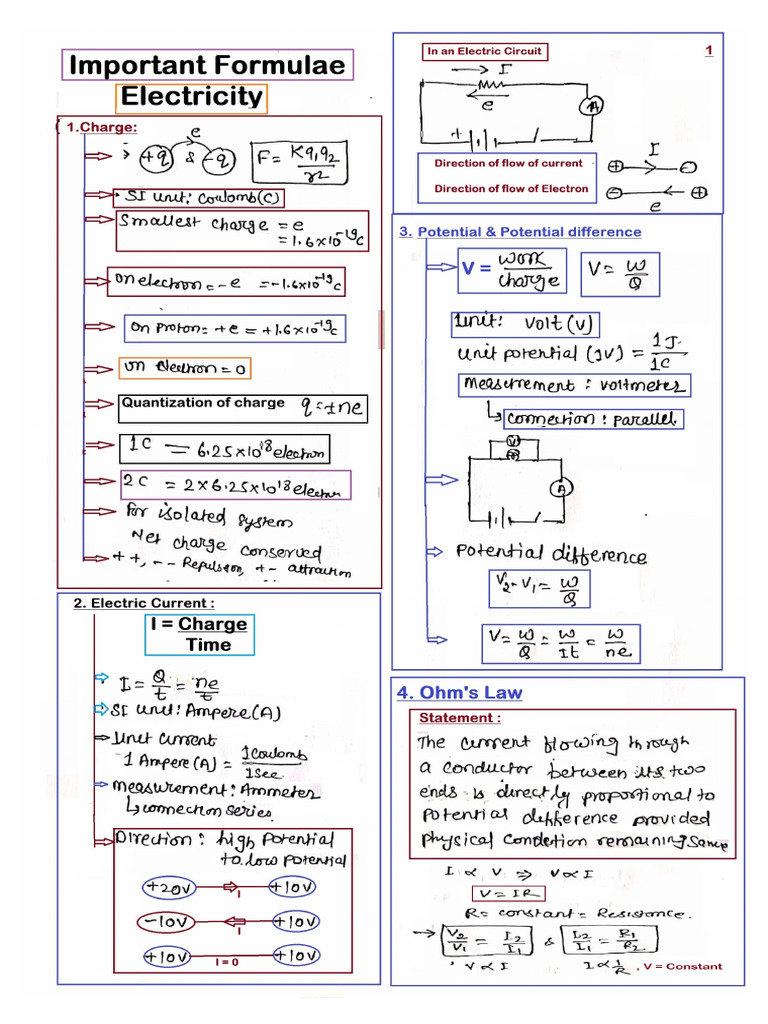 Important Formulae
Electricity
1.Charge:
e
+q & -q F = Kq1q2/r2
SI unit: Coulomb(C)
Smallest charge = e
= 1.6×10-19C
on electron = -e = -1.6×10-19C
on Proton = +e = +1.6×10-19C
on electron = 0
Quantization of charge q = ±ne
1C = 6.25×10^18 electron
2C = 2×6.25×10^18 electron
For isolated system
Net charge conserved
++, -- Repulsion, +- attraction
2. Electric Current :
I = Charge
Time
I = Q/t = ne/t
SI unit: Ampere(A)
Unit current
1 Ampere(A) = 1Coulomb/1Sec
measurement: Ammeter
connection series
Direction: high Potential
to low Potential
+20V I +10V
-10V I +10V
+10V I = 0 +10V
1
In an Electric Circuit
I
e
A
+
Direction of flow of current
Direction of flow of Electron
+ I -
- e +
3. Potential & Potential difference
V = work/charge V = W/Q
Unit: volt (v)
Unit potential (1V) = 1J/1C
measurement: voltmeter
connection: parallel
V
A
Potential difference
V2-V1 = W/Q
V = W/Q = W/It = W/ne
4. Ohm's Law
Statement :
The current flowing through
a conductor between its two
ends is directly proportional to
Potential difference provided
Physical Condition remaining same
I ∝ V ⇒ V ∝ I
V = IR
R = constant = Resistance.
V2/V1 = I2/I1 & I2/I1 = R1/R2
V ∝ I I ∝ 1/R , V = Constant